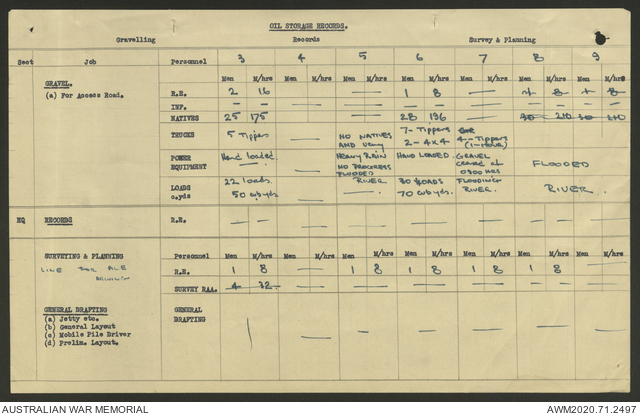 OIL STORAGE RECORDS.
Gravelling Records Survey & Planning
3 4 5 6 7 8 9
Sect Job Personnel Men M/hrs Men M/hrs Men M/hrs Men M/hrs Men M/hrs Men M/hrs Men M/hrs
GRAVEL.
(a) For Access Road. R.E. 2 16 — 1 8 — 1 8 1 8
INF. — — — — — — — — — —
NATIVES 25 175 — 28 196 — 30 210 30 210
TRUCKS 5 Tippers — NO NATIVES 7- Tippers 4-Tippers
AND very 2 - 4x4 (1-HOUR)
POWER Hand loaded. HEAVY RAIN HAND LOADED. GRAVEL
EQUIPMENT — NO PROGRESS CEASED at FLOODED
FLOODED 0800 HRS
LOADS 22 loads. RIVER 30 LOADS FLOODING RIVER.
c.yds 50 cub yds. — 70 cub yds. RIVER.
HQ RECORDS R.E. — — — — — — —
SURVEYING & PLANNING Personnel Men M/hrs Men M/hrs Men M/hrs Men M/hrs Men M/hrs Men M/hrs Men M/hrs
LINE FOR
R.E. 1 8 — 1 8 1 8 1 8 1 8 —
SURVEY RAA. 4 32 — — — — — —
GENERAL DRAFTING GENERAL
(a) Jetty etc. DRAFTING
(b) General Layout
(c) Mobile Pile Driver
(d) Prelim. Layout.
AUSTRALIAN WAR MEMORIAL AWM2020.71.2497